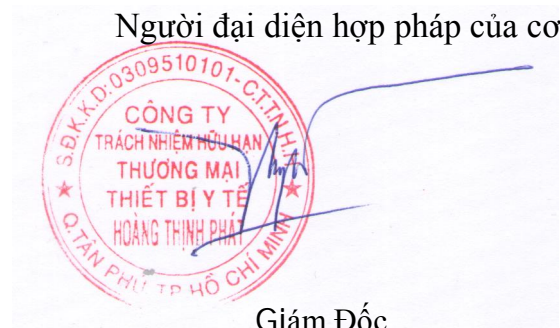 Người đại diện hợp pháp của cơ
S.Đ.K.K.D:0309510101-C.T.T.N.H.H
CÔNG TY
TRÁCH NHIỆM HỮU HẠN
THƯƠNG MẠI
THIẾT BỊ Y TẾ
HOÀNG THỊNH PHÁT
Q.TÂN PHÚ TP HỒ CHÍ MINH
Giám Đốc